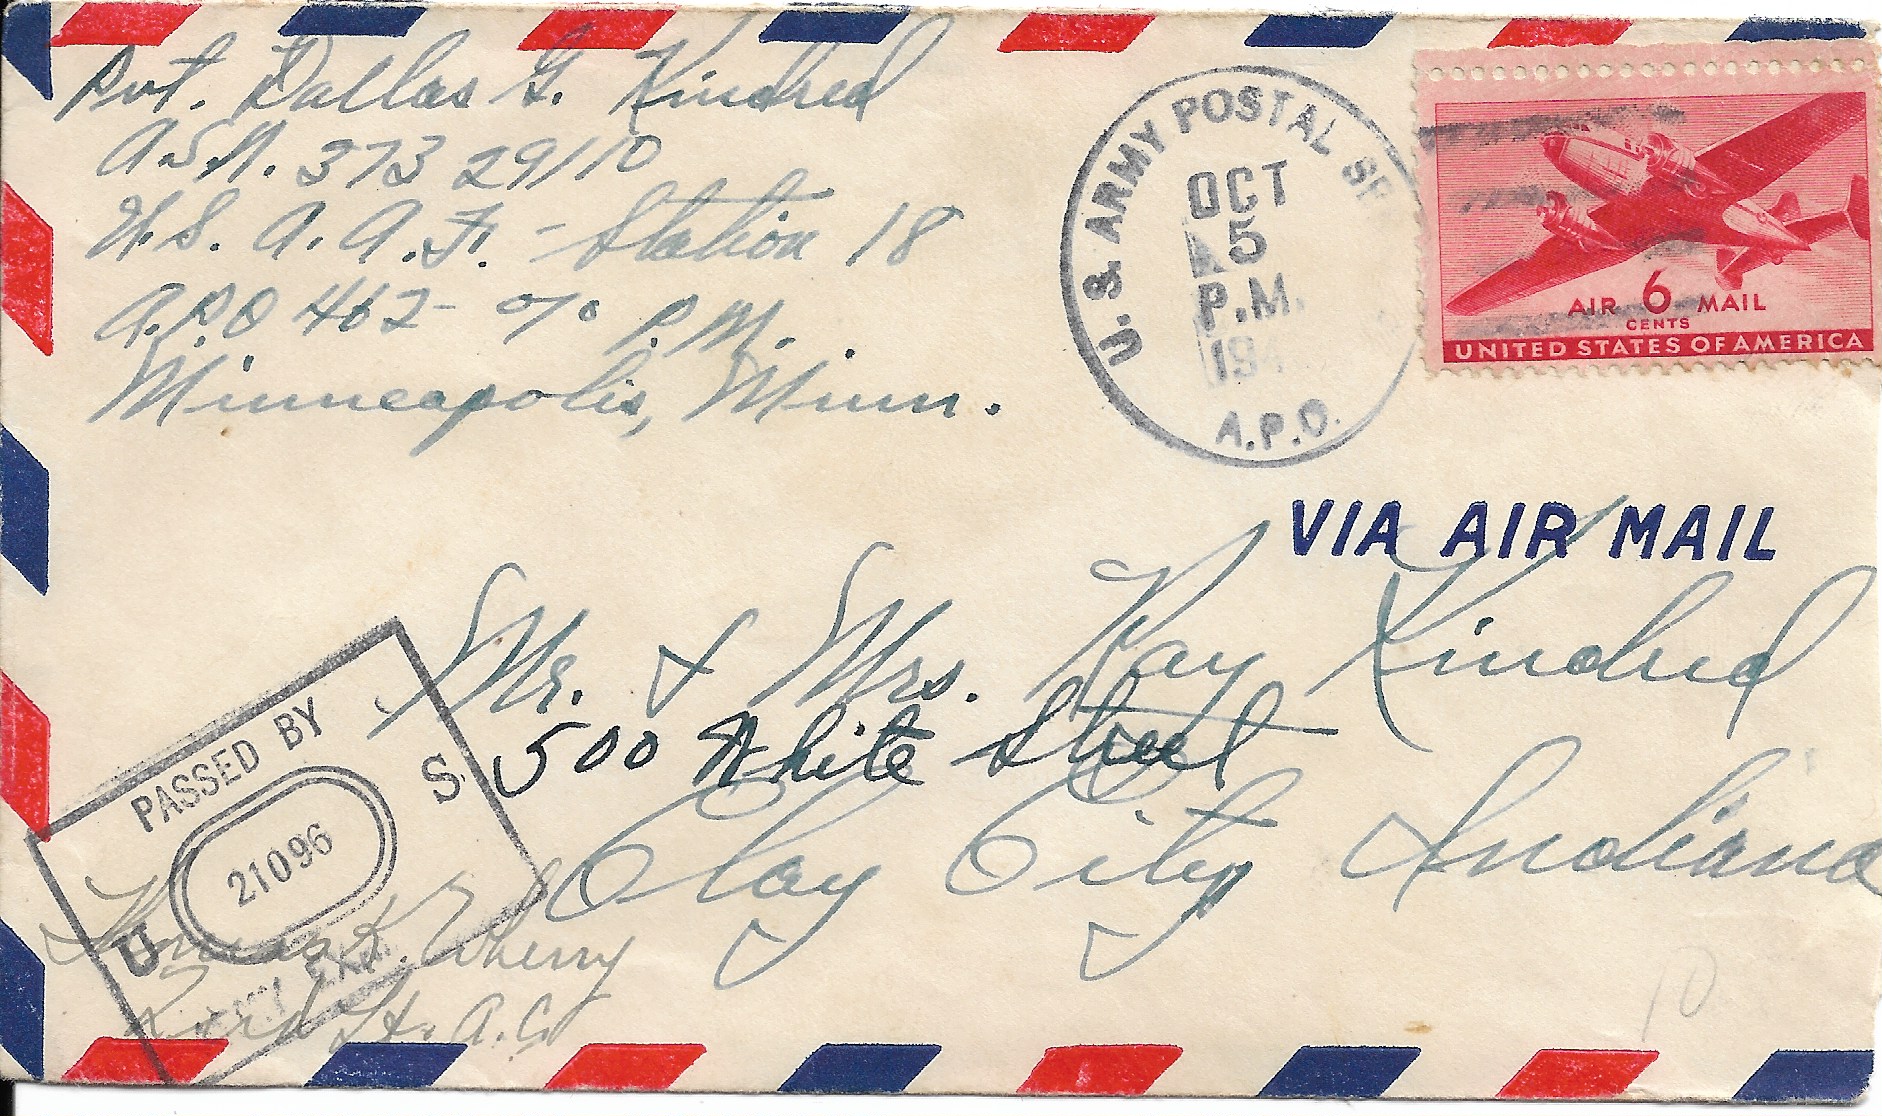 Pvt. Dallas G. Kindred
A.S.N. 37329110
U.S.A.A.F. - Station 18
A.P.O 462 - c/o P.M.
Minneapolis, Minn.
U.S. ARMY POSTAL
OCT
5
P.M.
194
A.P.O.
AIR 6 MAIL
CENTS
UNITED STATES OF AMERICA
VIA AIR MAIL
Mr. & Mrs. Ray Kindred
500 White Street
Clay City, Indiana
PASSED BY
U 21096 S
Thomas K. Wherry
2nd Lt. A.C.
10